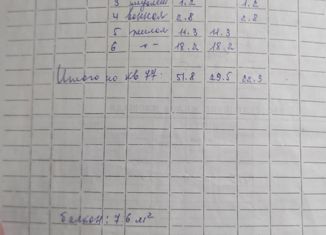 3 туалет 1.2 1.2
4 ванная 2.8 2.8
5 жилая 11.3 11.3
6 -"- 18.2 18.2
Итого по кв 77: 51.8 29.5 22.3
балкон: 7 6 м²